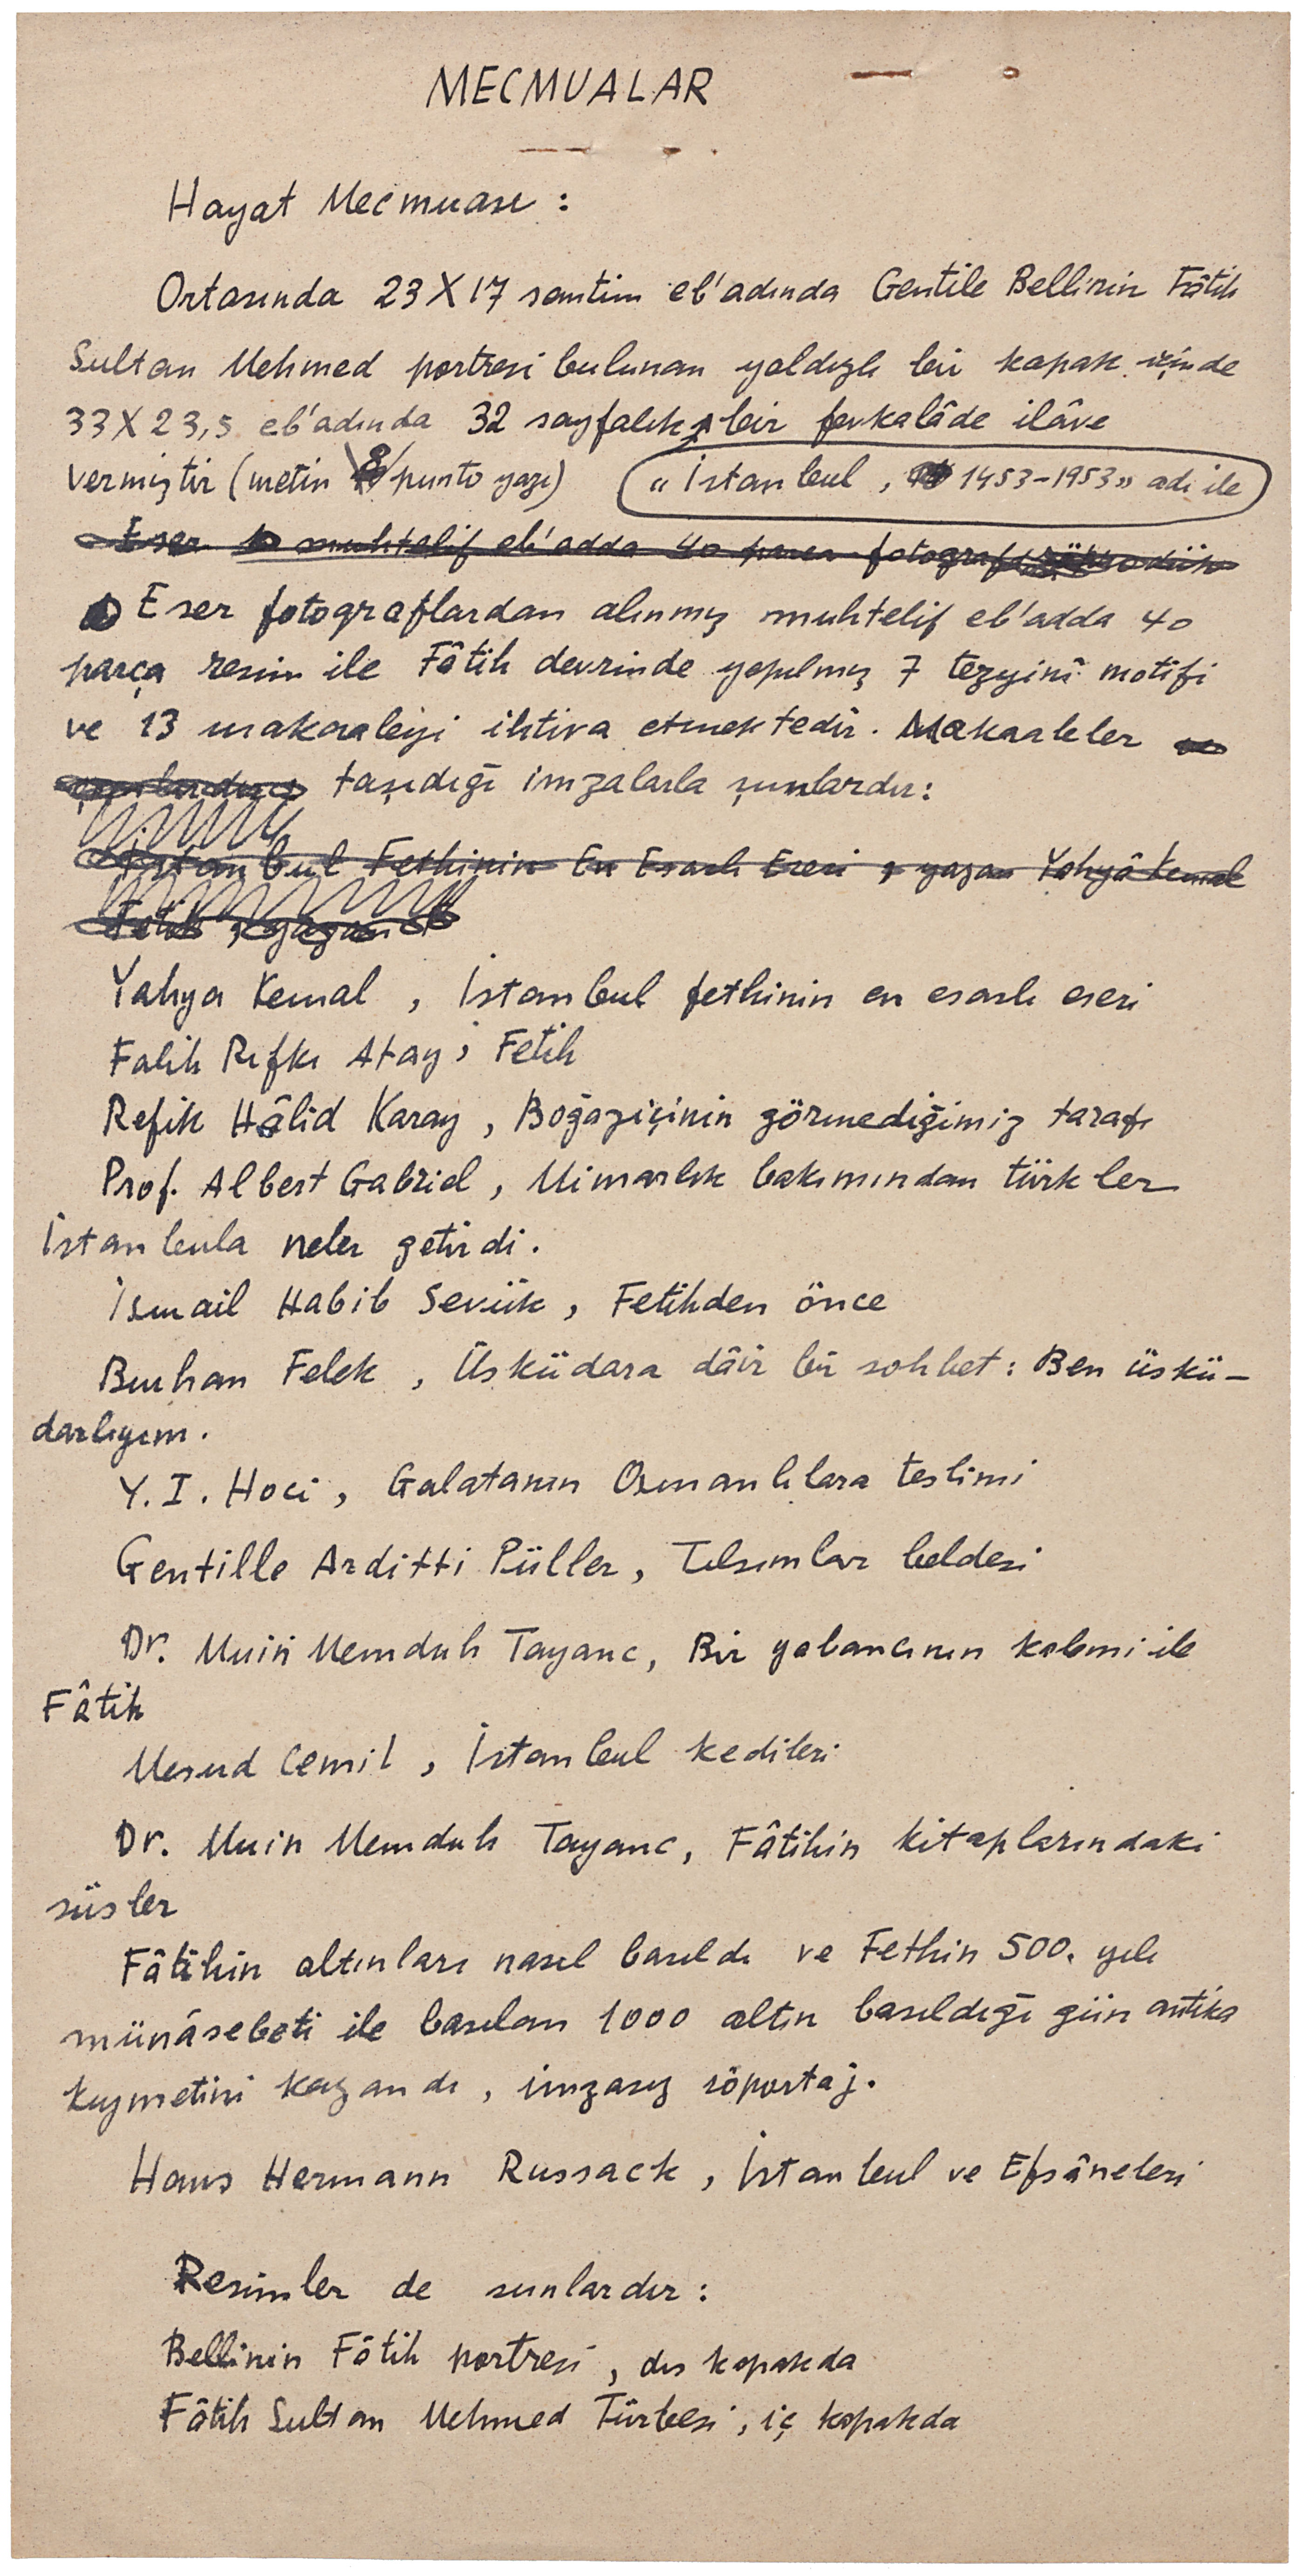 MECMUALAR
Hayat Mecmuası :
Ortasında 23X17 santim eb'adında Gentile Bellinin Fâtih
Sultan Mehmed portresi bulunan yaldızlı bir kapak içinde
33X23,5 eb'adında 32 sayfalık bir fevkalâde ilâve
vermiştir (metin 8 punto yazı) « İstanbul , 1453-1953» adı ile
Eser muhtelif eb'adda 40 parça fotograf
Eser fotograflardan alınmış muhtelif eb'adda 40
parça resim ile Fâtih devrinde yapılmış 7 tezyinî motifi
ve 13 makaaleyi ihtiva etmektedir. Makaaleler
taşıdığı imzalarla şunlardır:
İstanbul Fethinin En Esaslı Eseri , yazan Yahyâ Kemal
Fetih , yazan
Yahya Kemal , İstanbul fethinin en esaslı eseri
Falih Rıfkı Atay , Fetih
Refik Hâlid Karay , Boğaziçinin görmediğimiz tarafı
Prof. Albert Gabriel , Mimarlık bakımından türkler
İstanbula neler getirdi .
İsmail Habib Sevük , Fetihden önce
Burhan Felek , Üsküdara dâir bir sohbet : Ben üskü-
darlıyım .
Y. I. Hoci , Galatanın Osmanlılara teslimi
Gentille Arditti Püller , Tılsımlar beldesi
Dr. Muin Memduh Tayanc , Bir yabancının kalemi ile
Fâtih
Mesud Cemil , İstanbul kedileri
Dr. Muin Memduh Tayanc , Fâtihin kitaplarındaki
süsler
Fâtihin altınları nasıl basıldı ve Fethin 500. yılı
münâsebeti ile basılan 1000 altın basıldığı gün antika
kıymetini kazandı , imzasız röportaj .
Hans Hermann Russack , İstanbul ve Efsâneleri
Resimler de şunlardır :
Bellinin Fâtih portresi , dış kapakda
Fâtih Sultan Mehmed Türbesi , iç kapakda